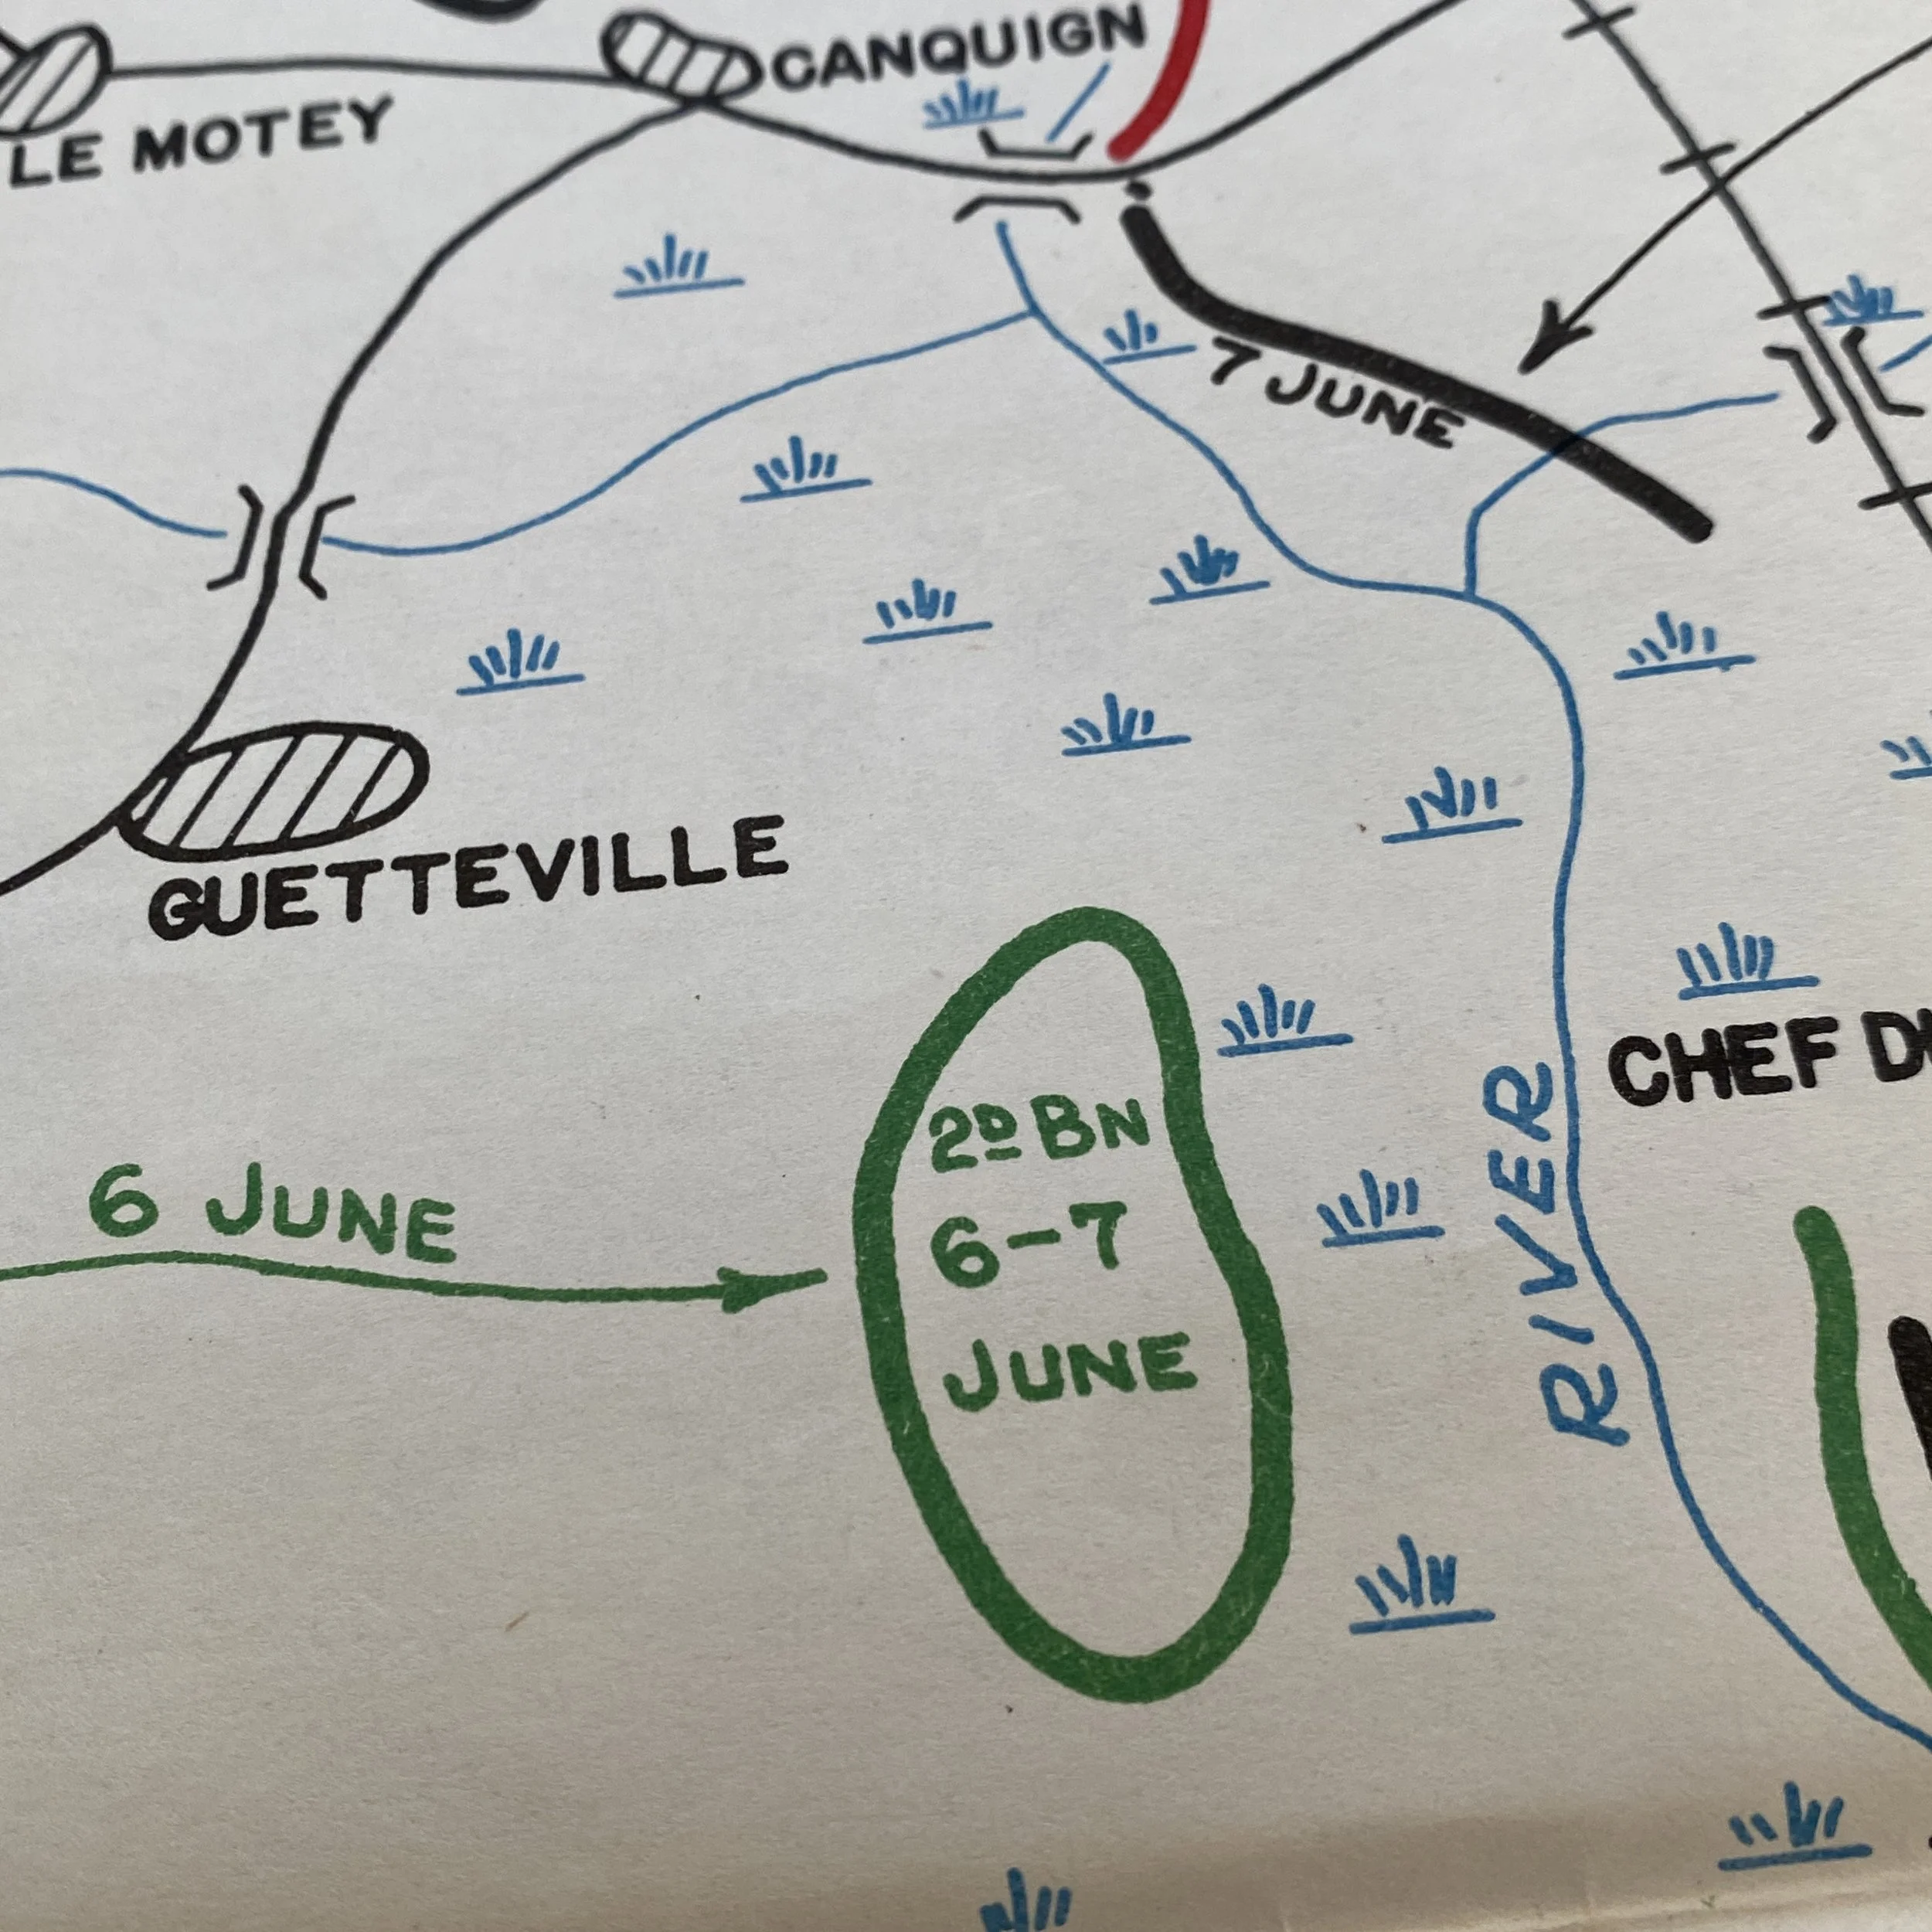 CANQUIGN
LE MOTEY
7 JUNE
GUETTEVILLE
CHEF
RIVER
6 JUNE
2D BN
6-7
JUNE